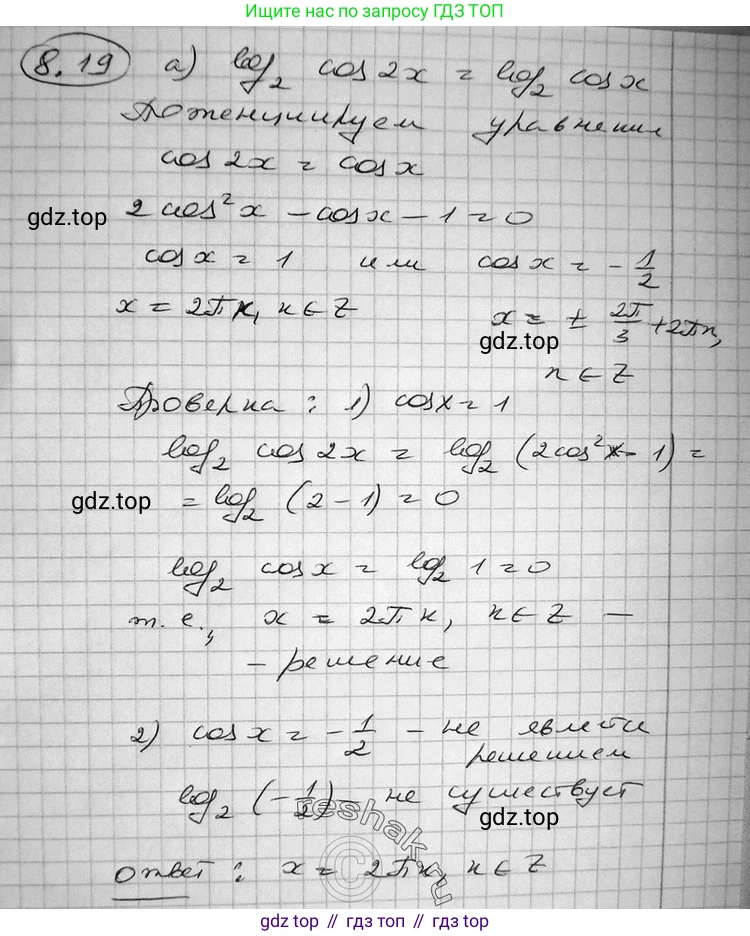 Ищите нас по запросу ГДЗ ТОП
8.19 а) log₂ cos 2x = log₂ cos x
Потенциируем уравнения
cos 2x = cos x
gdz.top 2 cos² x - cos x - 1 = 0
cos x = 1 или cos x = - 1/2
x = 2πk, k ∈ Z x = ± 2π/3 + 2πn,
gdz.top
n ∈ Z
Проверка: 1) cos x = 1
log₂ cos 2x = log₂ (2cos² x - 1) =
gdz.top = log₂ (2 - 1) = 0
log₂ cos x = log₂ 1 = 0
т. е., x = 2πk, k ∈ Z —
— решение
2) cos x = - 1/2 — не является
решением
log₂ (- 1/2) — не существует
reshak.ru
gdz.top
©
Ответ: x = 2πk, k ∈ Z
gdz top // гдз топ // гдз top